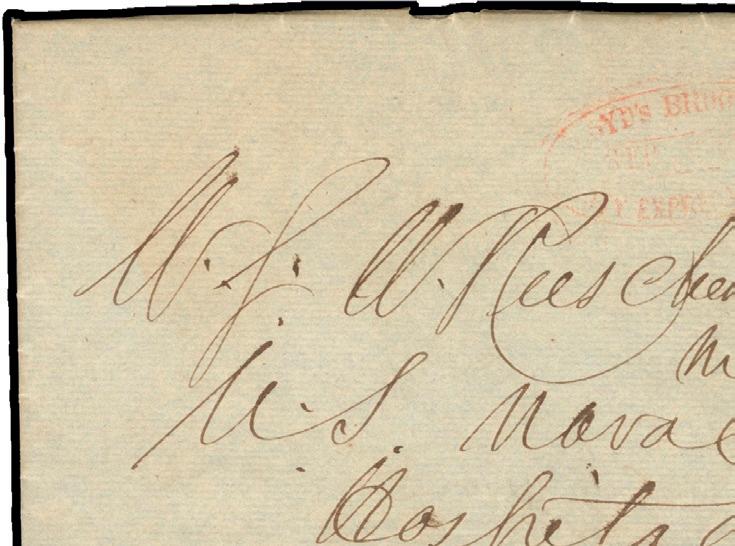 YD'S BROO
SEP
Y EXPRE
W. S. W. Ruschen
M
U.S. Nava
Hospita